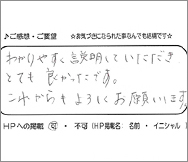 ♪ご感想・ご要望 ☆お気づきになられた事なんでも結構です☆
わかりやすく説明していただき
とても良かったです。
これからもよろしくお願いします。
HPへの掲載 可・不可（HP掲載名：名前・イニシャル